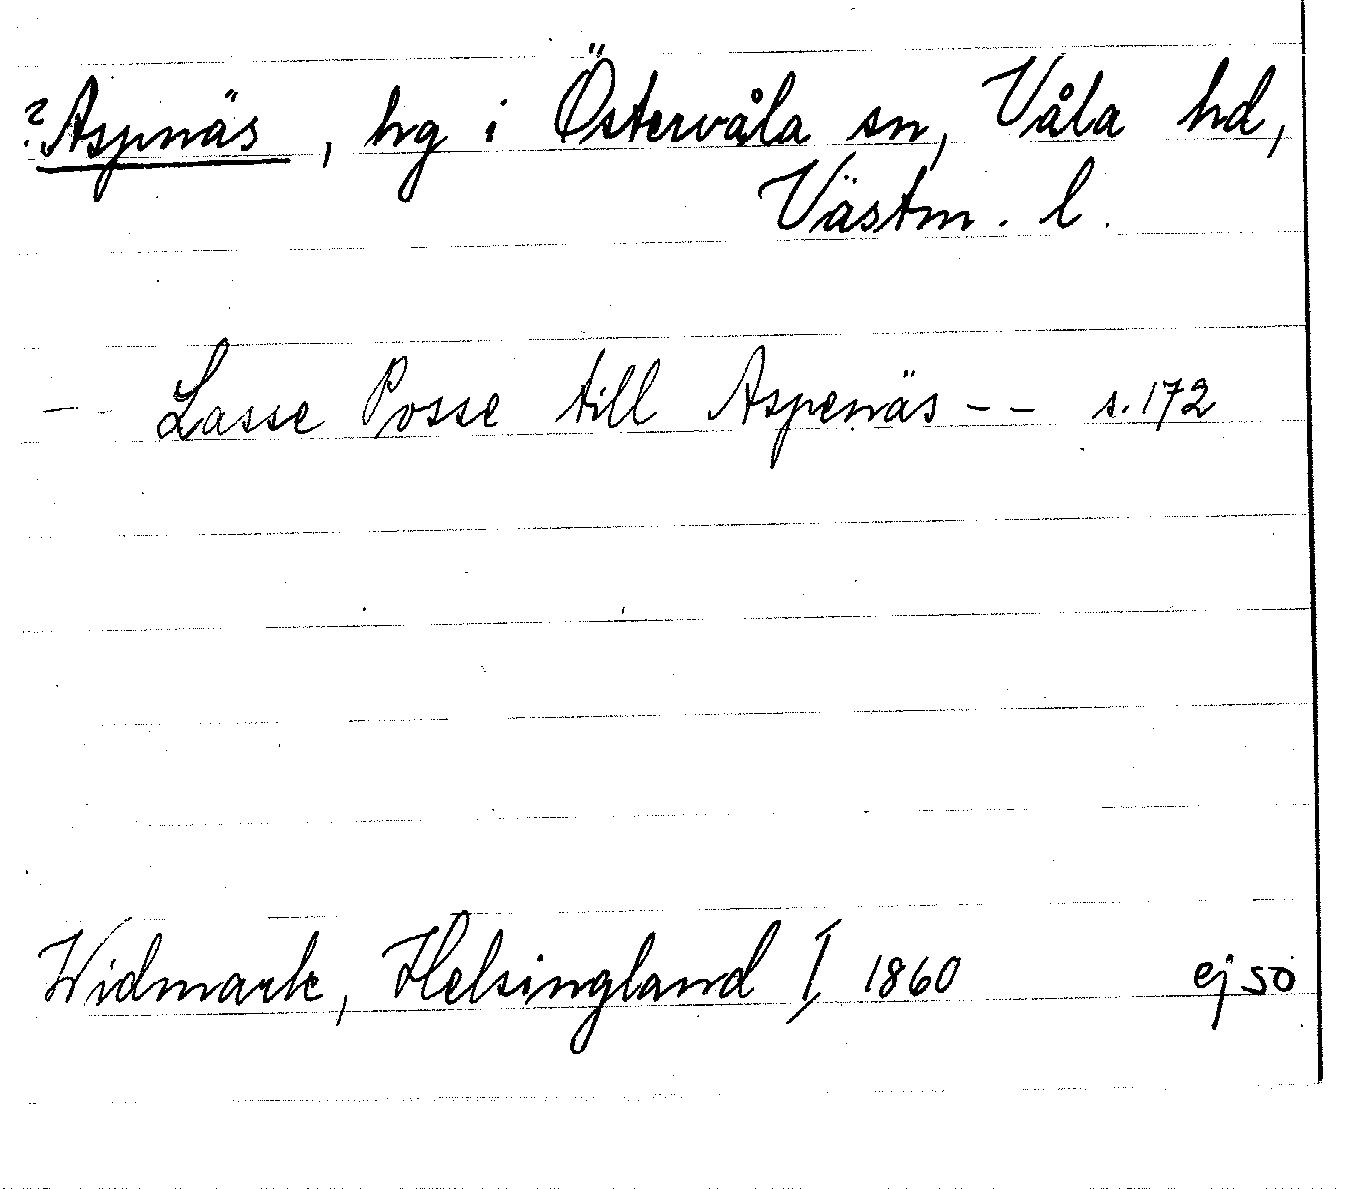 ? Aspnäs, hg i Östervåla sn, Våla hd,
Västm. l.
- - Lasse Posse till Aspenäs - - s. 172
Widmark, Helsingland I 1860 ej so